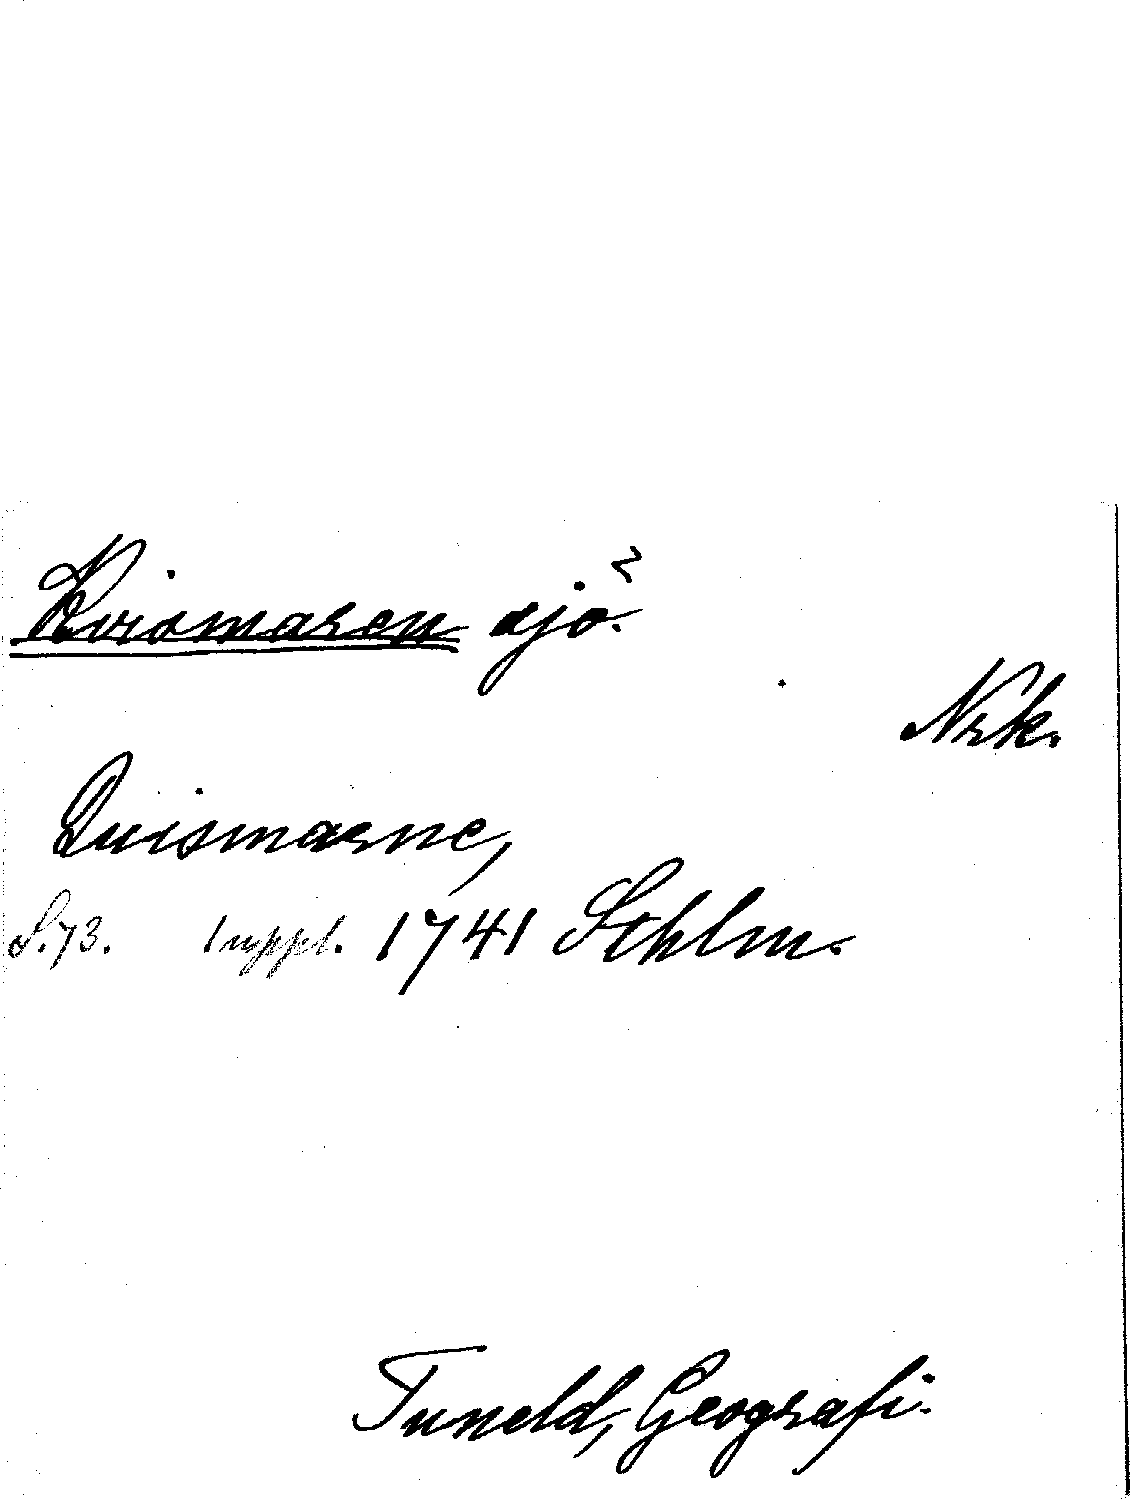 Kvismaren sjö.
Nrk.
Quismarne,
S. 73. suppl. 1741 Sthlm.
Tuneld, Geografi.